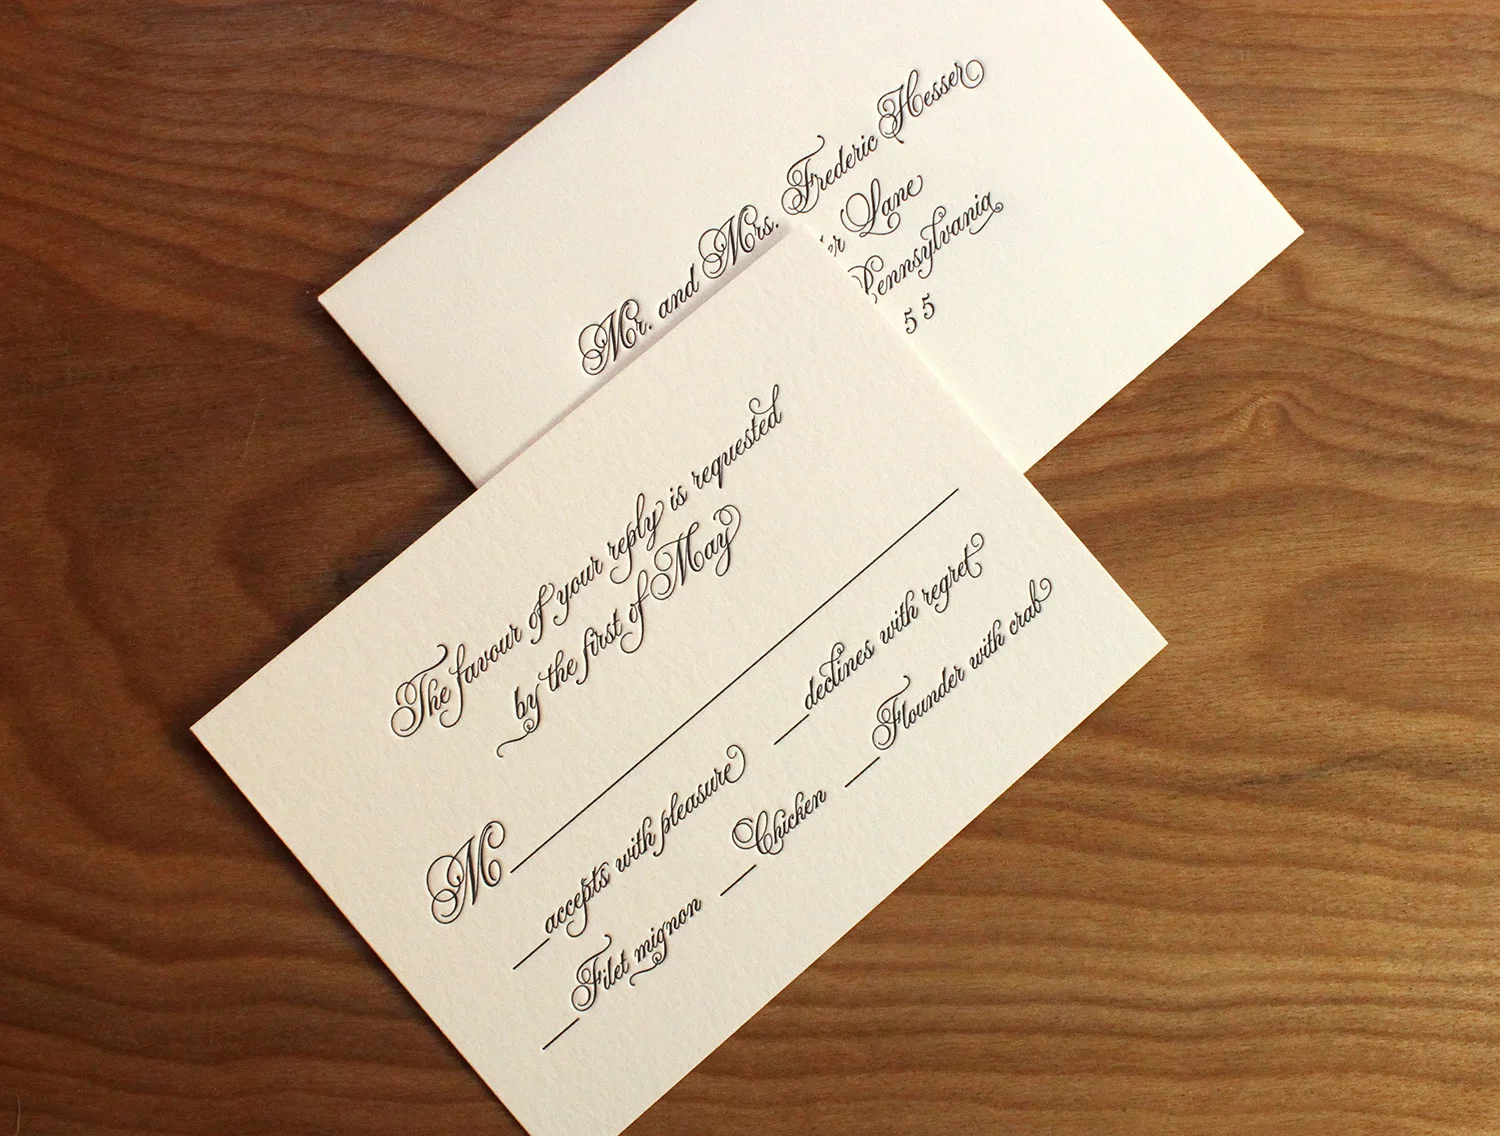 Mr. and Mrs. Frederic Hesser
Lane
Pennsylvania
55
The favour of your reply is requested
by the first of May
M
accepts with pleasure declines with regret
Filet mignon Chicken Flounder with crab